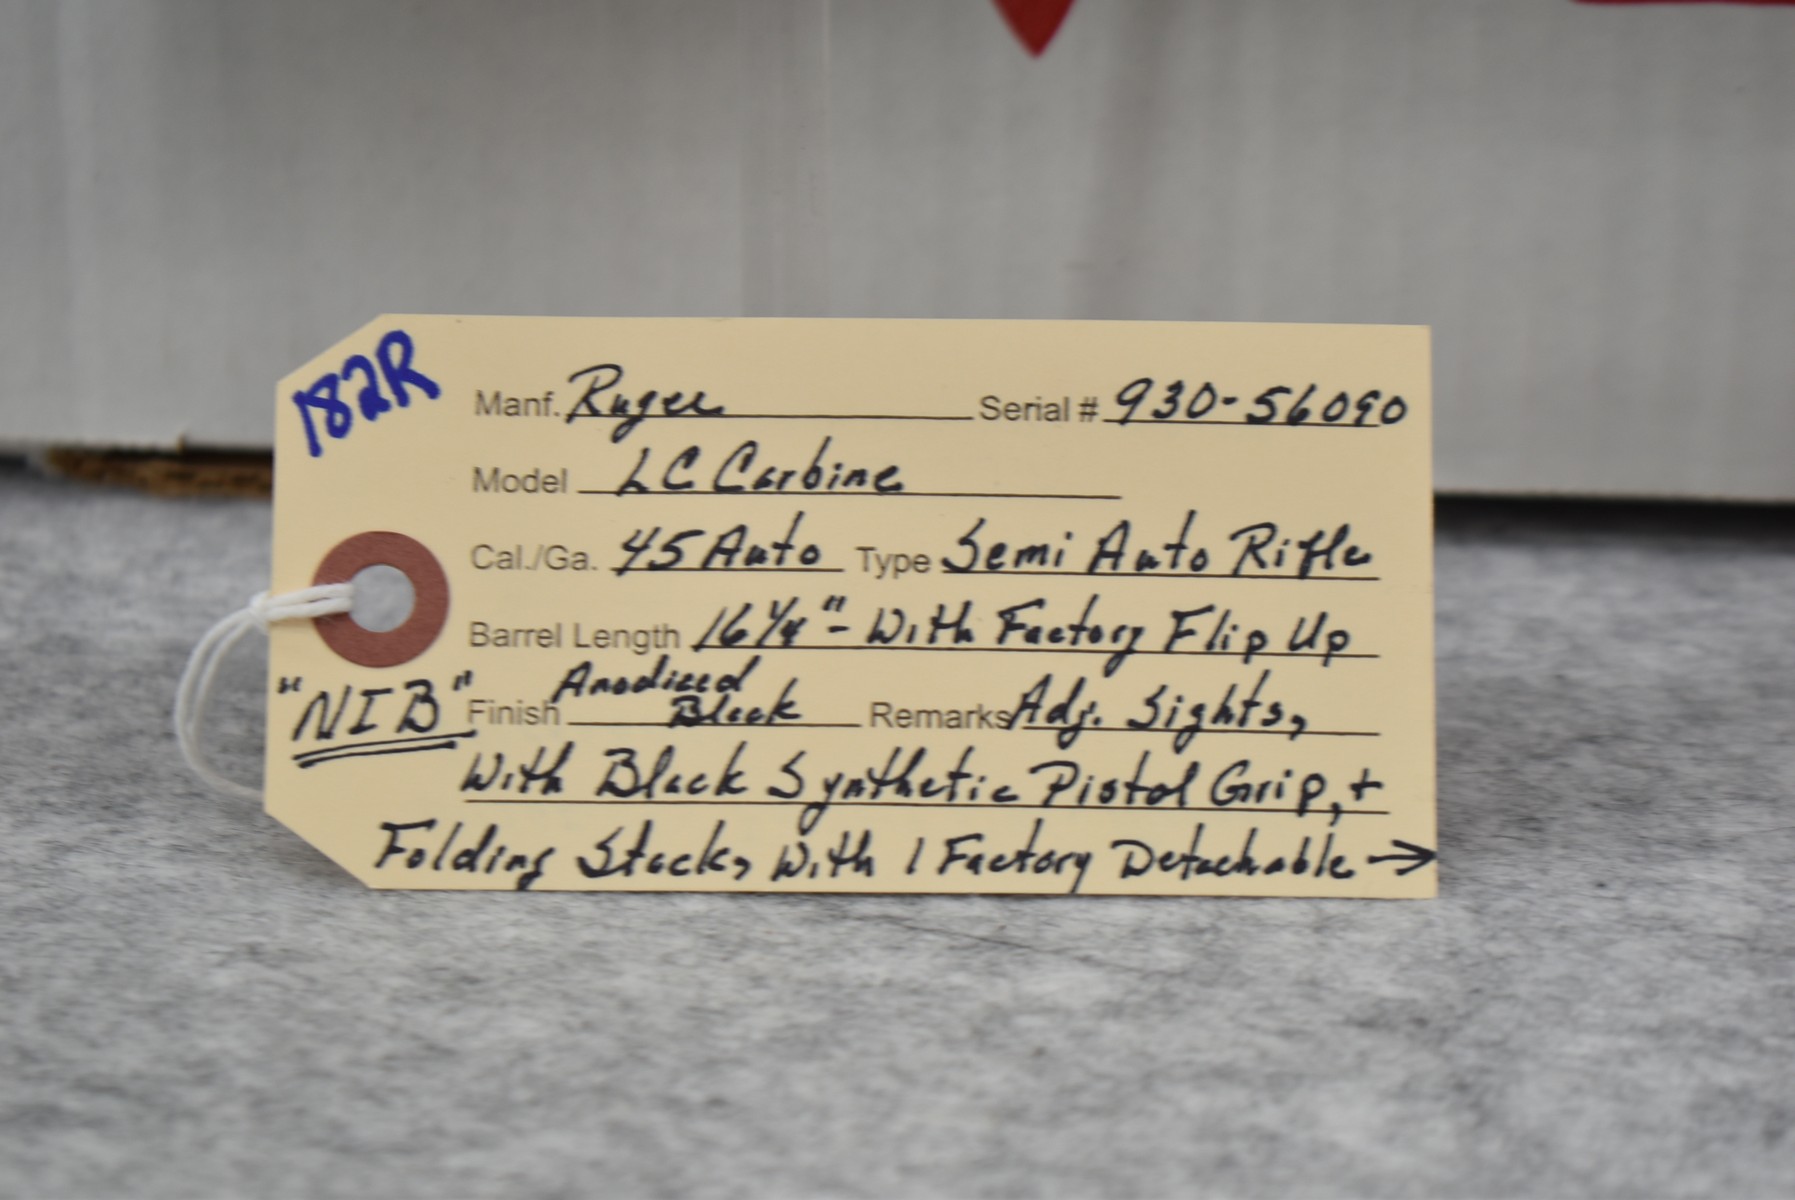 182R
Manf. Ruger Serial # 930-56090
Model LC Carbine
Cal./Ga. 45 Auto Type Semi Auto Rifle
Barrel Length 16 1/4" - With Factory Flip Up
"NIB" Finish Anodized Black Remarks Adj. Sights,
With Black Synthetic Pistol Grip, +
Folding Stock, With 1 Factory Detachable →